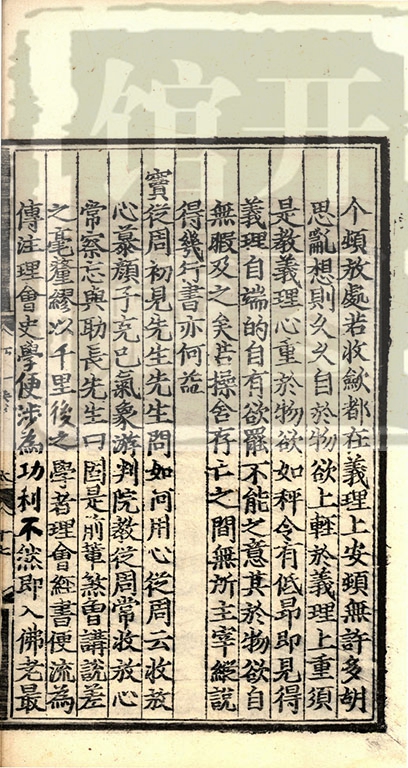 个頓放處若收斂都在義理上安頓無許多胡
思亂想則久久自於物欲上輕於義理上重須
是教義理心重於物欲如秤令有低昂即見得
義理自端的自有欲罷不能之意其於物欲自
無暇及之矣苟操舍存亡之間無所主宰縱説
得幾行書亦何益
竇從周初見先生先生問如何用心從周云收放
心慕顔子克己氣象游判院教從周常收放心
常察忘與助長先生曰固是前軰煞曾講説差
之毫釐繆以千里後之學者理會經書便流為
傳注理會史學便涉為功利不然即入佛老最